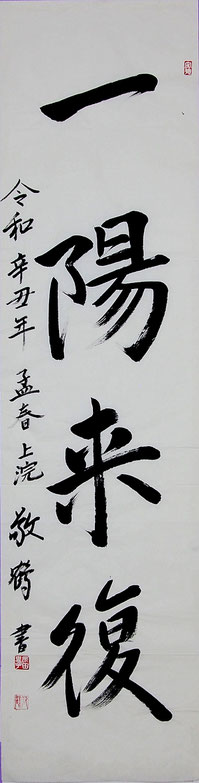 一陽来復
令和辛丑年孟春上浣敬鶴書